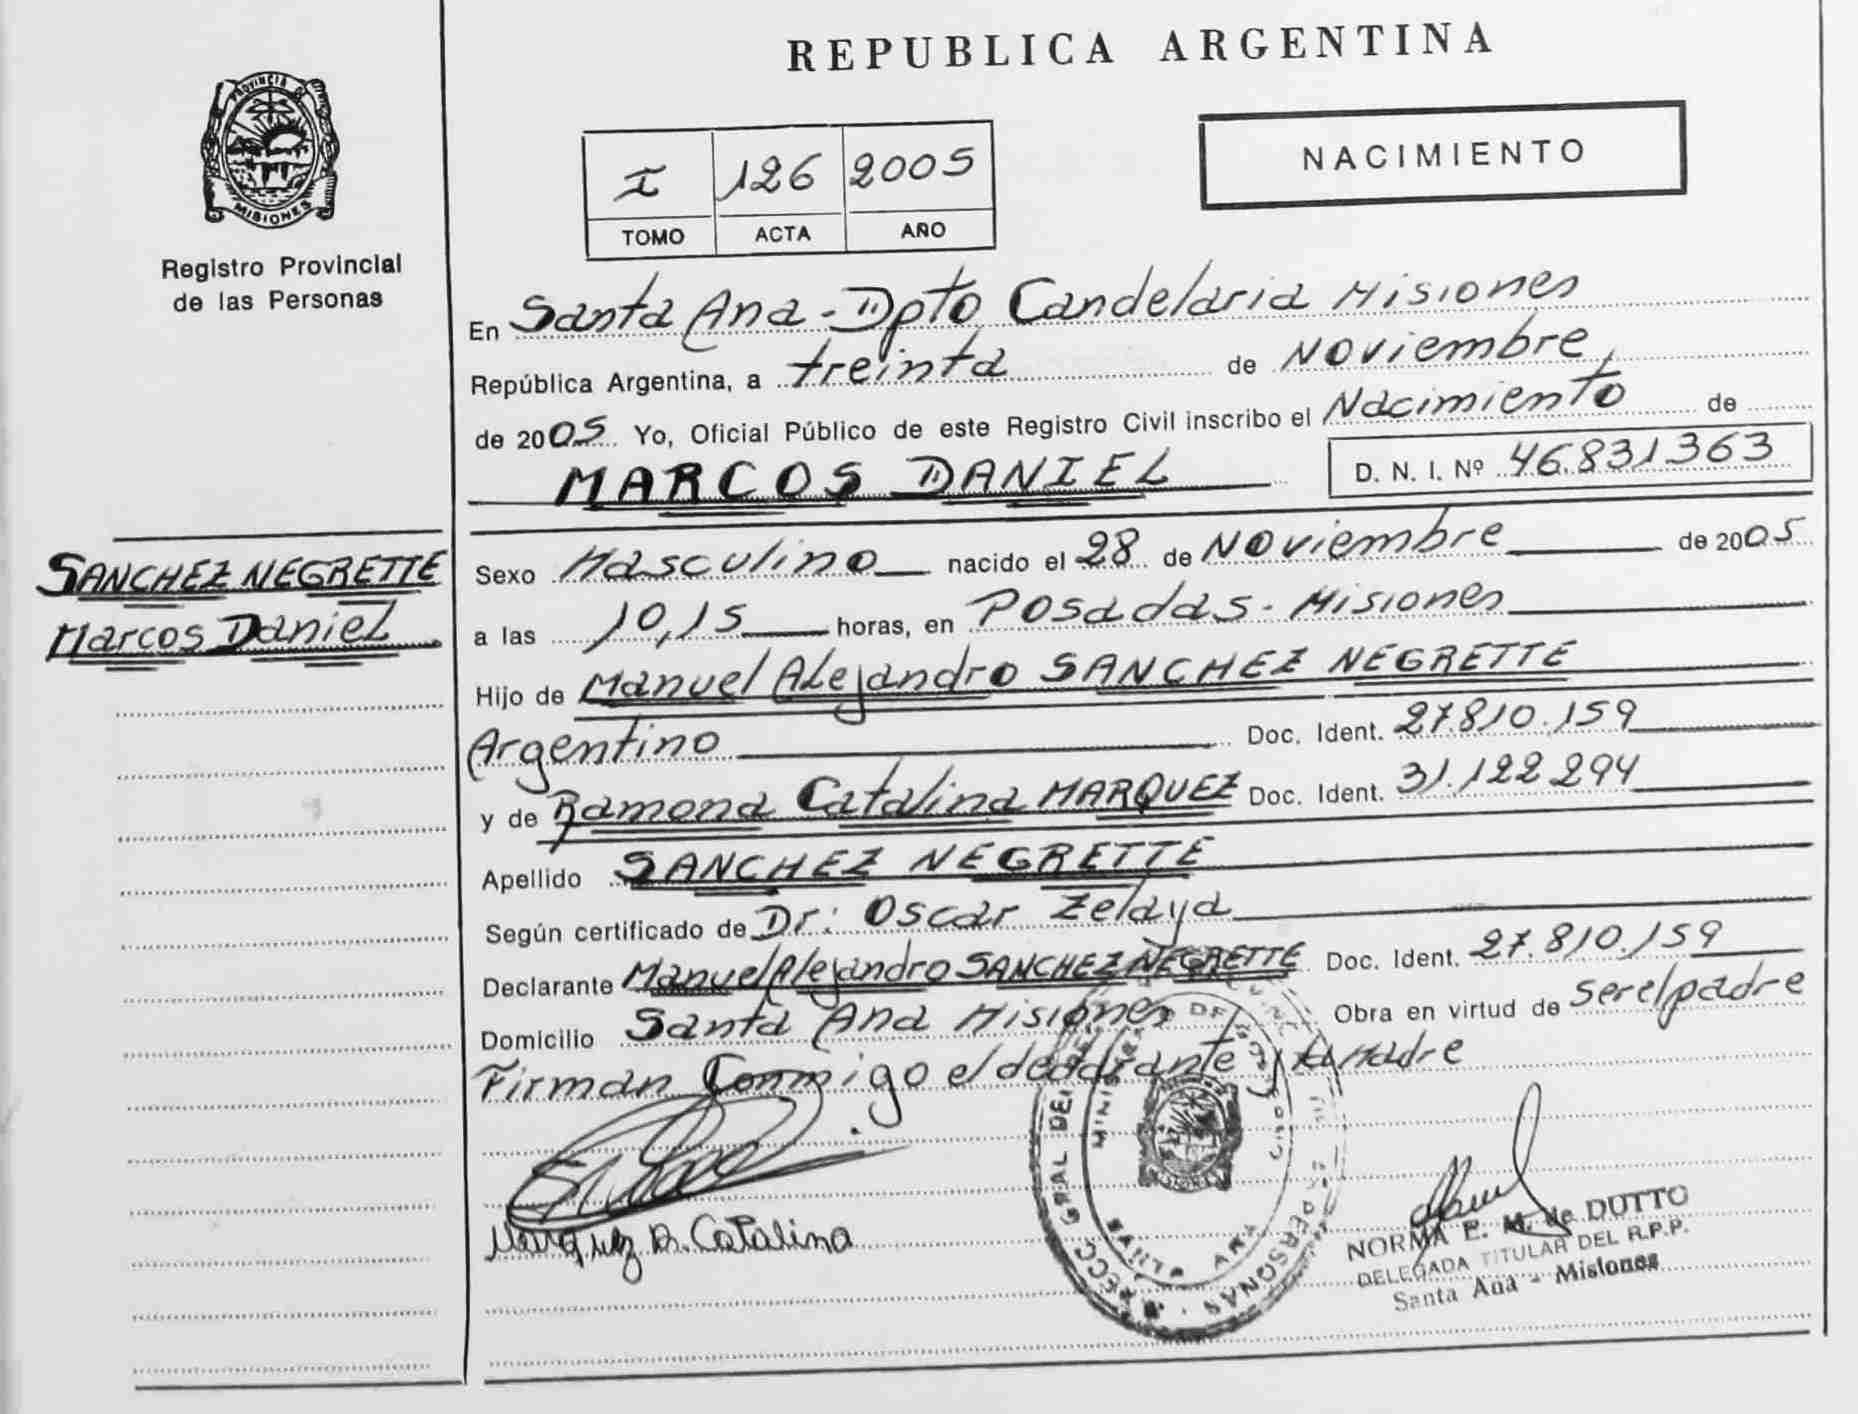 REPUBLICA ARGENTINA
PROVINCIA DE
MISIONES
Registro Provincial
de las Personas
NACIMIENTO
I 126 2005
TOMO ACTA AÑO
En Santa Ana - Dpto Candelaria Misiones
República Argentina, a treinta de Noviembre
de 2005 Yo, Oficial Público de este Registro Civil inscribo el Nacimiento de
MARCOS DANIEL D. N. I. Nº 46.831363
SANCHEZ NEGRETTE
Marcos Daniel
Sexo Masculino nacido el 28 de Noviembre de 2005
a las 10,15 horas, en Posadas - Misiones
Hijo de Manuel Alejandro SANCHEZ NEGRETTE
Argentino Doc. Ident. 27.810.159
y de Ramona Catalina MARQUEZ Doc. Ident. 31.122 294
Apellido SANCHEZ NEGRETTE
Según certificado de Dr: Oscar Zelaya
Declarante Manuel Alejandro SANCHEZ NEGRETTE Doc. Ident. 27.810.159
Domicilio Santa Ana Misiones Obra en virtud de ser el padre
Firman Conmigo el declarante y la Madre
Marquez R. Catalina
SANTA ANA
PERSONAS
NORMA E. M. de DUTTO
DELEGADA TITULAR DEL R.P.P.
Santa Ana - Misiones